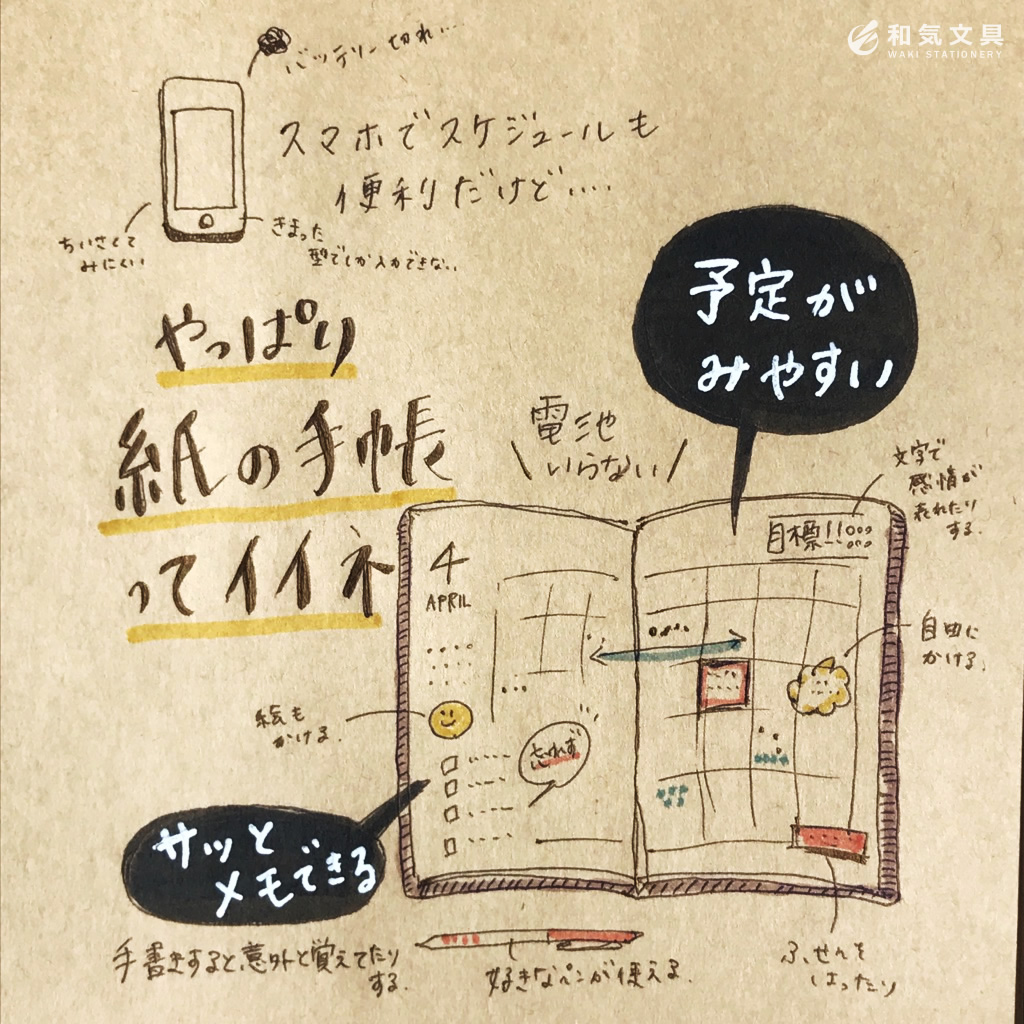 和気文具
WAKI STATIONERY
バッテリー切れ…
スマホでスケジュールも
便利だけど....
ちいさくて
みにくい
きまった
型でしか入力できない
やっぱり
紙の手帳
ってイイネ
予定が
みやすい
電池
いらない
文字で
感情が
表れたり
する.
目標!!
4
APRIL
自由に
かける.
絵も
かける.
忘れず
サッと
メモできる
手書きすると、意外と覚えてたり
する.
好きなペンが使える.
ふせんを
はったり